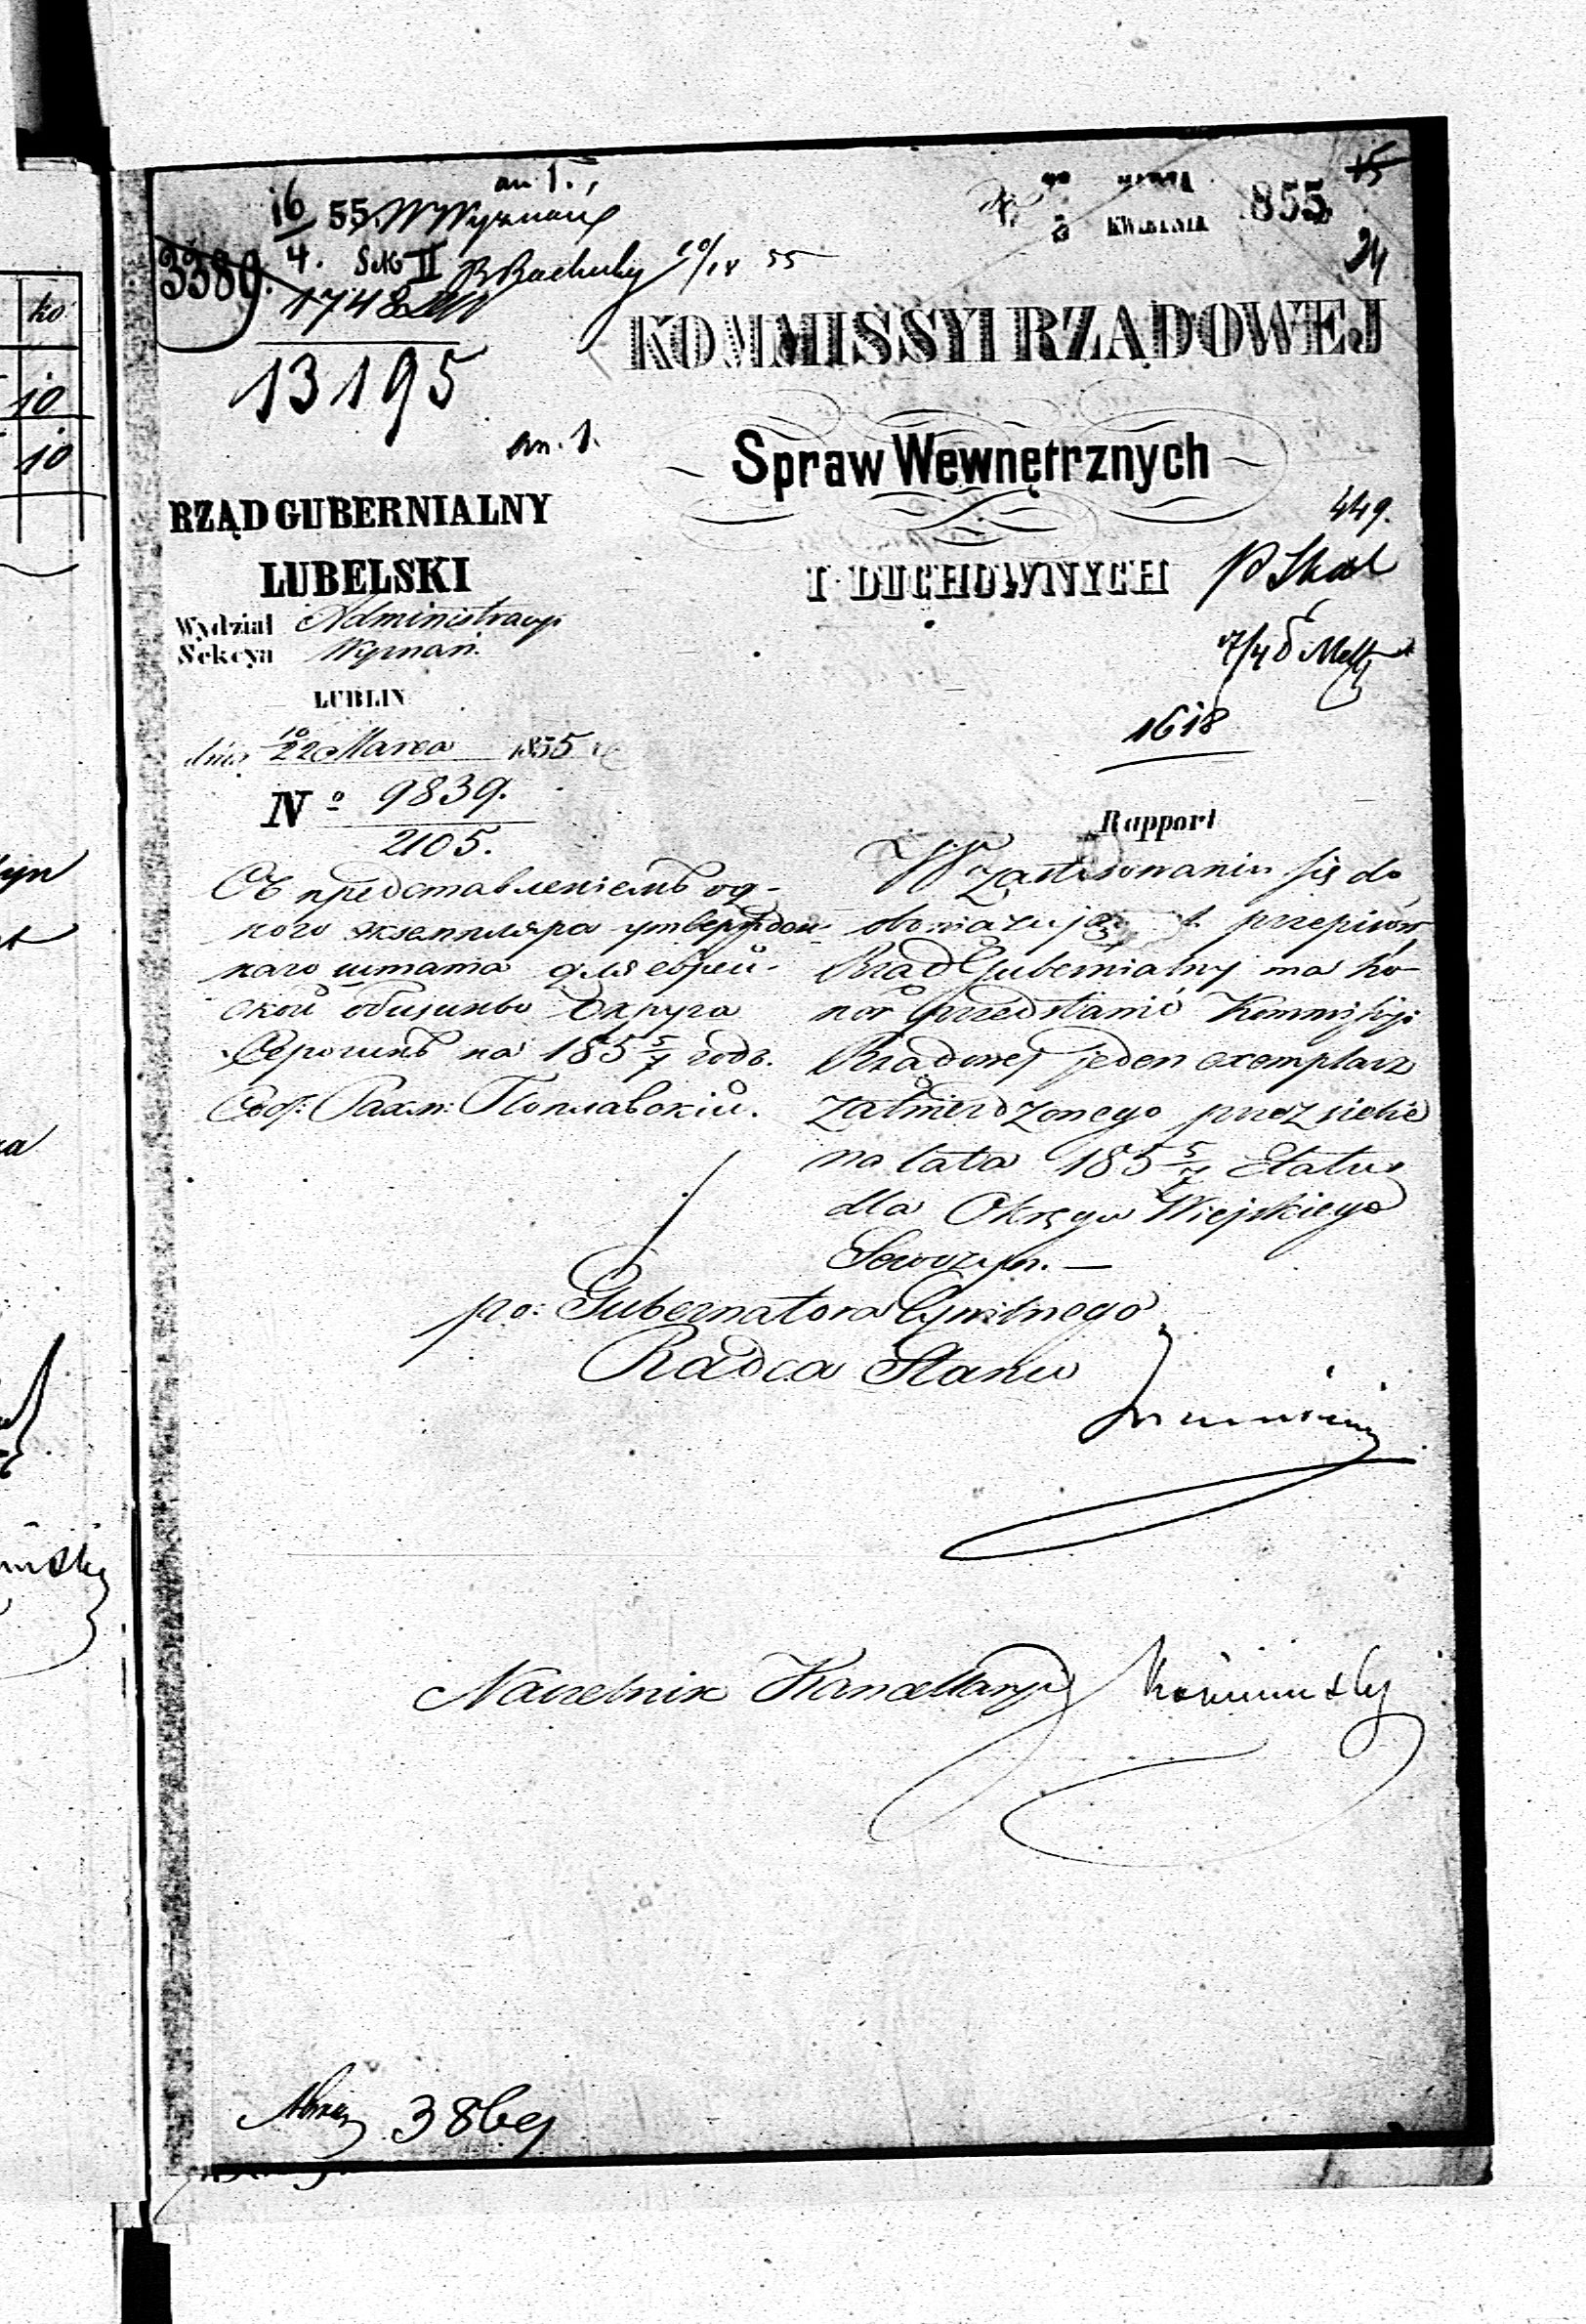 an 1.
16/4 55. W Wyznań
Sek II
3389.
1748
13195
an. 1.
KWIETNIA 1855
15
24
KOMMISSYI RZĄDOWEJ
Spraw Wewnętrznych
I DUCHOWNYCH
449.
7/4
1618
RZĄD GUBERNIALNY
LUBELSKI
Wydział Administracyi
Sekcya Wyznań.
LUBLIN
dnia 10/22 Marca 1855 r
No 9839.
2105.
Объ представленіемъ од-
ного экземпляра утвержден-
наго штата для еврей-
ской общины Округа
на 185 5/7 годъ.
Поплавскій.
Rapport
W zastosowaniu się do
obowiązując przepisów
Rząd Gubernialny ma ho-
nor przedstawić Kommissyi
Rządowej jeden exemplarz
zatwierdzonego przez siebie
na lata 185 5/7 Etatu
dla Okręgu Wiejskiego
po: Gubernatora Cywilnego
Radca Stanu
Naczelnik Kancellaryi
386
ko
10
10